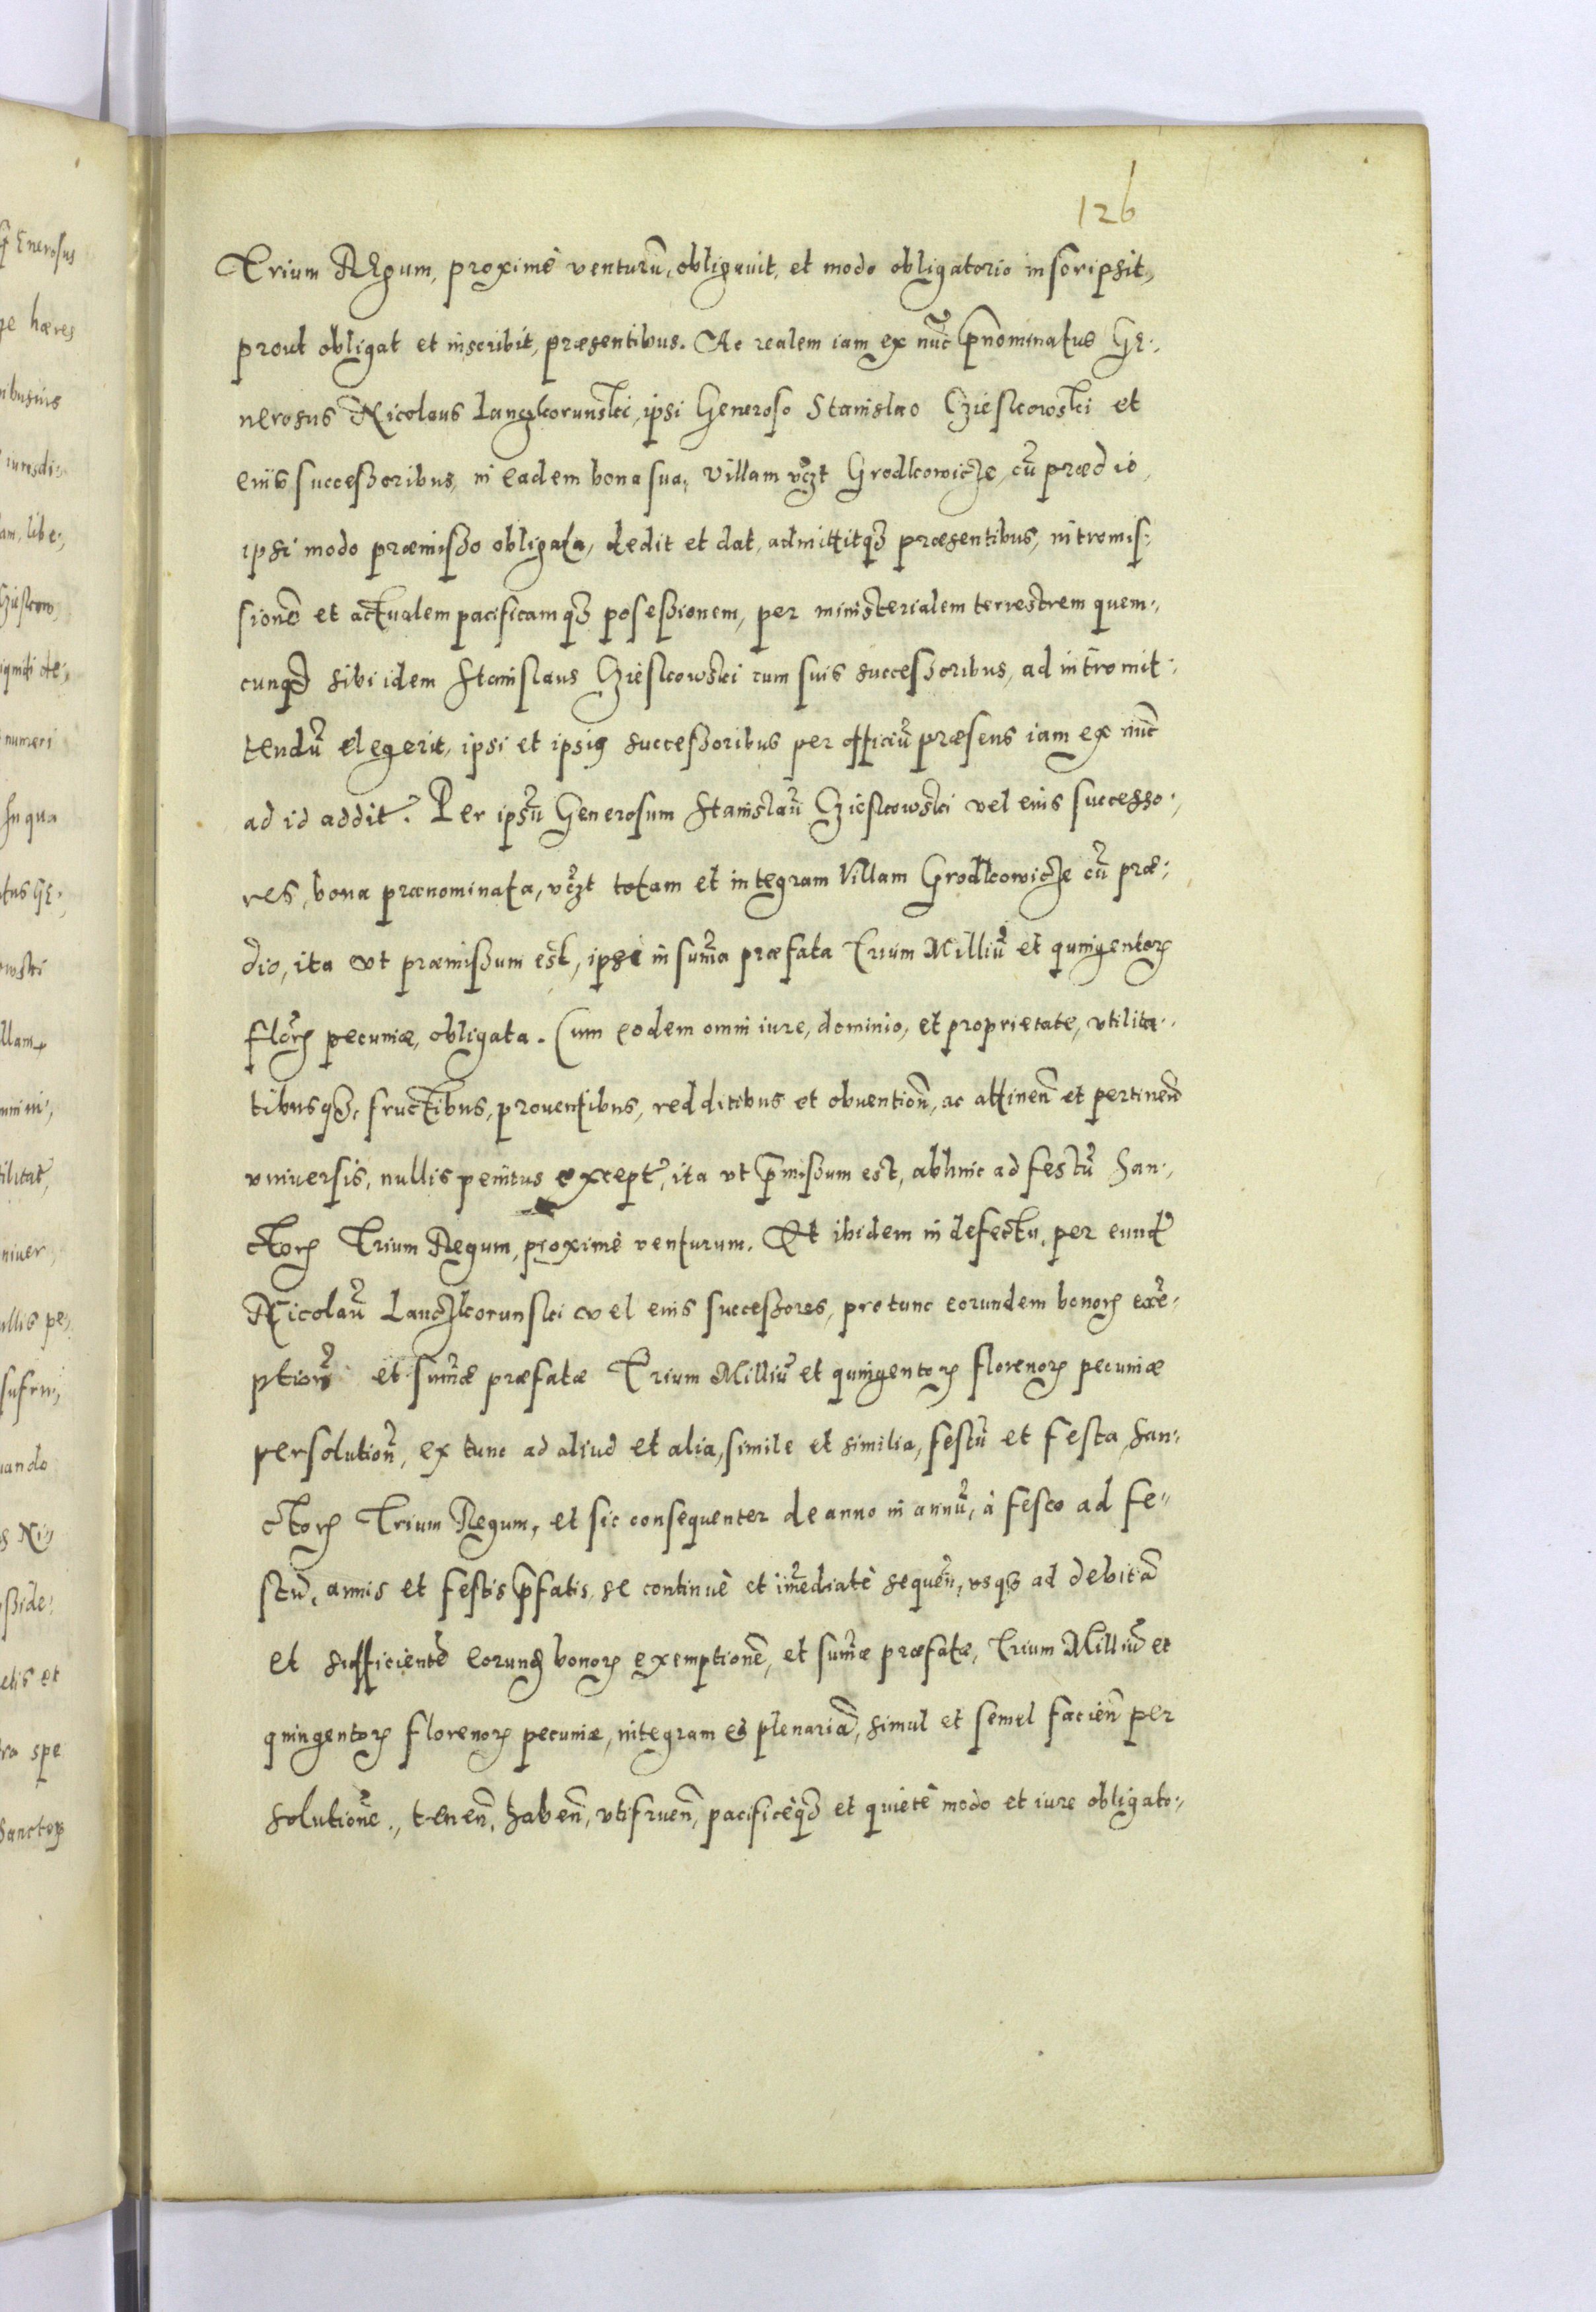 126
Trium Regum, proximè venturũ, obligauit, et modo obligatorio inscripsit,
prout obligat et inscribit, præsentibus. Ac realem iam ex nũc p̃nominatus Ge:,
nerosus Nicolaus Lanczkorunski, ipsi Generoso Stanislao Czieskowski et
eius successoribus, in eadem bona sua, Villam vcȝt Grodkowicze, cũ prædio,
ipsi modo præmisso obligata, dedit et dat, admittitqȝ præsentibus, intromis:,
sionẽ et actualem pacificamqȝ posessionem, per ministerialem terrestrem quem:,
cunqȝ sibi idem Stanislaus Czieskowski cum suis successoribus, ad intromit:,
tendũ elegerit, ipsi et ipsiꝯ successoribus per officiũ præsens iam ex nũc
ad id addit̃. Per ipsũ Generosum Stanislaũ Czieskowski vel eius successo:,
res, bona prænominata, vcȝt totam et integram Villam Grodkowicze cũ præ:,
dio, ita vt præmissum est, ipsi in sum̃a præfata Trium Milliũ et quingentoꝝ
floꝝ pecuniæ, obligata. Cum eodem omni iure, dominio, et proprietate, vtilita:,
tibusqȝ, fructibus, prouentibus, redditibus et obuentioñ, ac attineñ et pertineñ
vniversis, nullis penitus except̃, ita vt p̃missum est, abhinc ad festũ San:,
ctoꝝ Trium Regum, proximè venturum. Et ibidem in defectu, per eund̃
Nicolaũ Lanczkorunski vel eius successores, pro tunc eorundem bonoꝝ exẽ:,
ptioñ et sum̃æ præfatæ Trium Milliũ et quingentoꝝ florenoꝝ pecuniæ
persolutioñ, ex tunc ad aliud et alia, simile et similia, festũ et festa, San:,
ctoꝝ Trium Regum, et sic consequenter de anno in annũ, à festo ad fe:,
stũ, annis et festis p̃fatis, se continuè et im̃ediatè sequeñ, vsqȝ ad debitã
et sufficientẽ eorund̃ bonoꝝ exemptionẽ, et sum̃æ præfatæ, Trium Milliũ et
quingentoꝝ florenoꝝ pecuniæ, integram et plenariã, simul et semel facieñ per
solutionẽ., teneñ, habeñ, vtifrueñ, pacificèqȝ et quietè modo et iure obligato:,